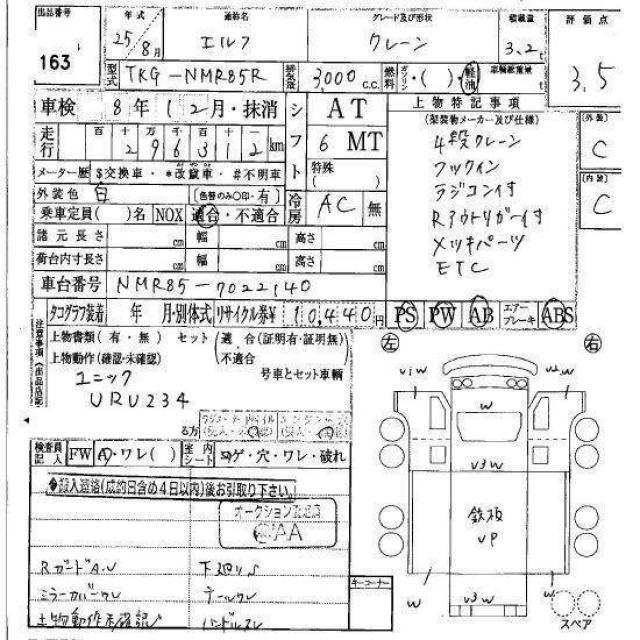 出品番号
163
年式
25/8月
通称名
エルフ
グレード及び形状
クレーン
積載量
3.2t
評価点
3.5
型式
TKG-NMR85R
排気量
3,000 C.C.
燃料
ガソリン・( )・軽油
車輌総重量
t
車検 8年12月・抹消
走行
百 十 万 千 百 十 一
2 9 6 3 1 2 km
メーター歴 $交換車・*改竄車・#不明車
外装色 白
色替のみ○印・有
乗車定員( )名 NOX 適合・不適合
シフト
AT
6 MT
特殊
( )
冷房 AC 無
上物特記事項
(架装物メーカー及び仕様)
4段クレーン
フックイン
ラジコン付
Rアウトリガー付
メッキパーツ
ETC
外装
C
内装
C
諸元長さ cm 幅 cm 高さ cm
荷台内寸長さ cm 幅 cm 高さ cm
車台番号 NMR85-7022140
タコグラフ装着 年 月・別体式 リサイクル券¥ 10,440円
PS PW AB エアーブレーキ ABS
注意事項(出品店記入)
上物書類(有・無) セット(適合(証明有・証明無)
上物動作(確認・未確認) 不適合
号車とセット車輌
ユニック
URU234
左
右
検査員記入
FW A・ワレ( )
室内シート
コゲ・穴・ワレ・破れ
◆搬入連絡(成約日含め4日以内)後お引取り下さい。
オークション認定店
Rガード A.U
下廻りS
ミラーカバーワレ
テールワレ
上物動作未確認
ハンドルスレ
キーコーナー
w
w
v3w
鉄板
VP
w
w
v3w
スペア